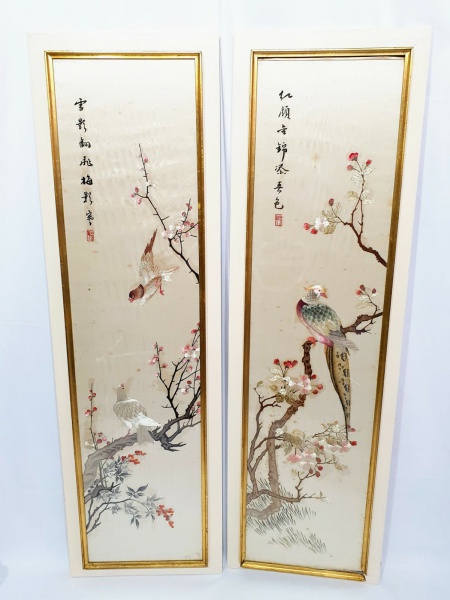 雪影翻飛梅影寒
紅顏金錦添春色